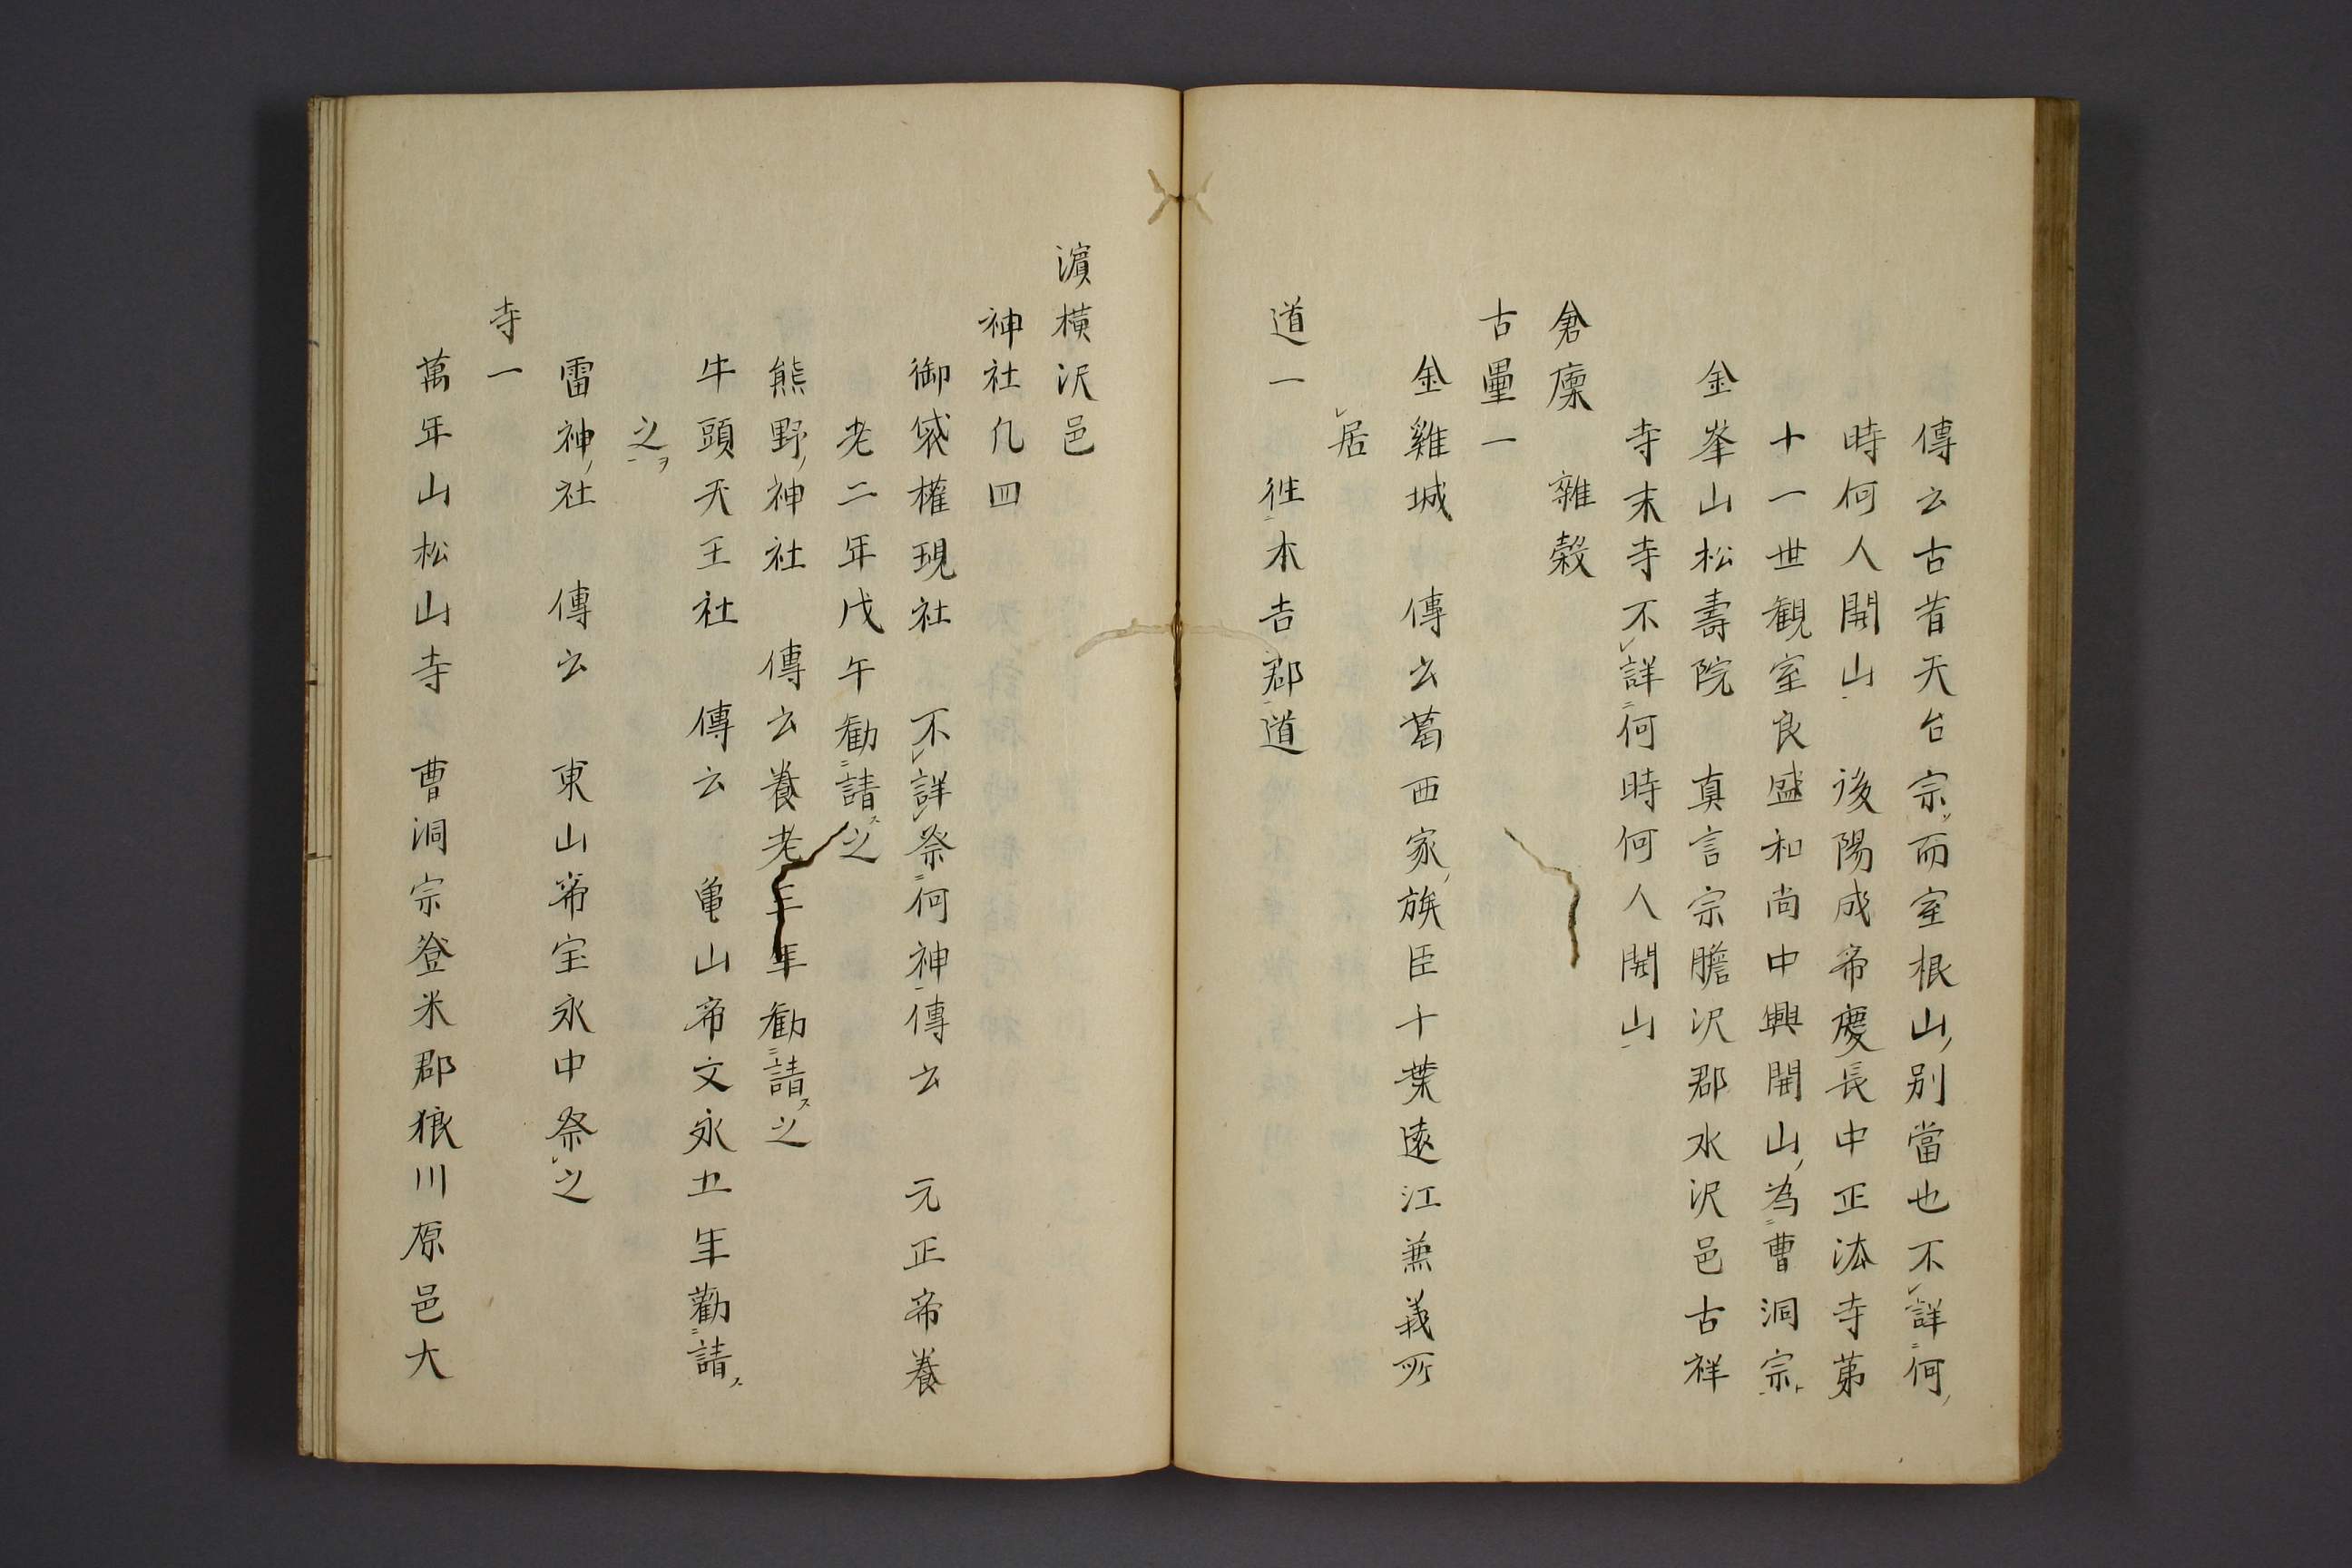 傳云古昔天台宗ッ而室根山ノ別當也不レ詳ニ何ノ
時何人開山一　後陽成帝慶長中正法寺第
十一世観室良盛和尚中興開山ノ為ニ曹洞宗ト一
金峯山松壽院　真言宗膽沢郡水沢邑古祥
寺末寺不レ詳ニ何時何人開山一
倉廩　雜穀
古壘一
金雞城　傳云葛西家ノ族臣十葉遠江兼義所
レ居
道一　往ニ本吉郡一道
濵横沢邑
神社凢四
御袋權現社　不レ詳レ祭ニ何神一傳云　元正帝養
老二年戊午勸ニ請ス之
熊野ノ神社　傳云養老年勧ニ請ス之
牛頭天王社　傳云　亀山帝文永五年勸ニ請ス
之ヲ一
雷神ノ社　傳云　東山帝宝永中祭レ之
寺一
萬年山松山寺　曹洞宗登米郡狼川原邑大